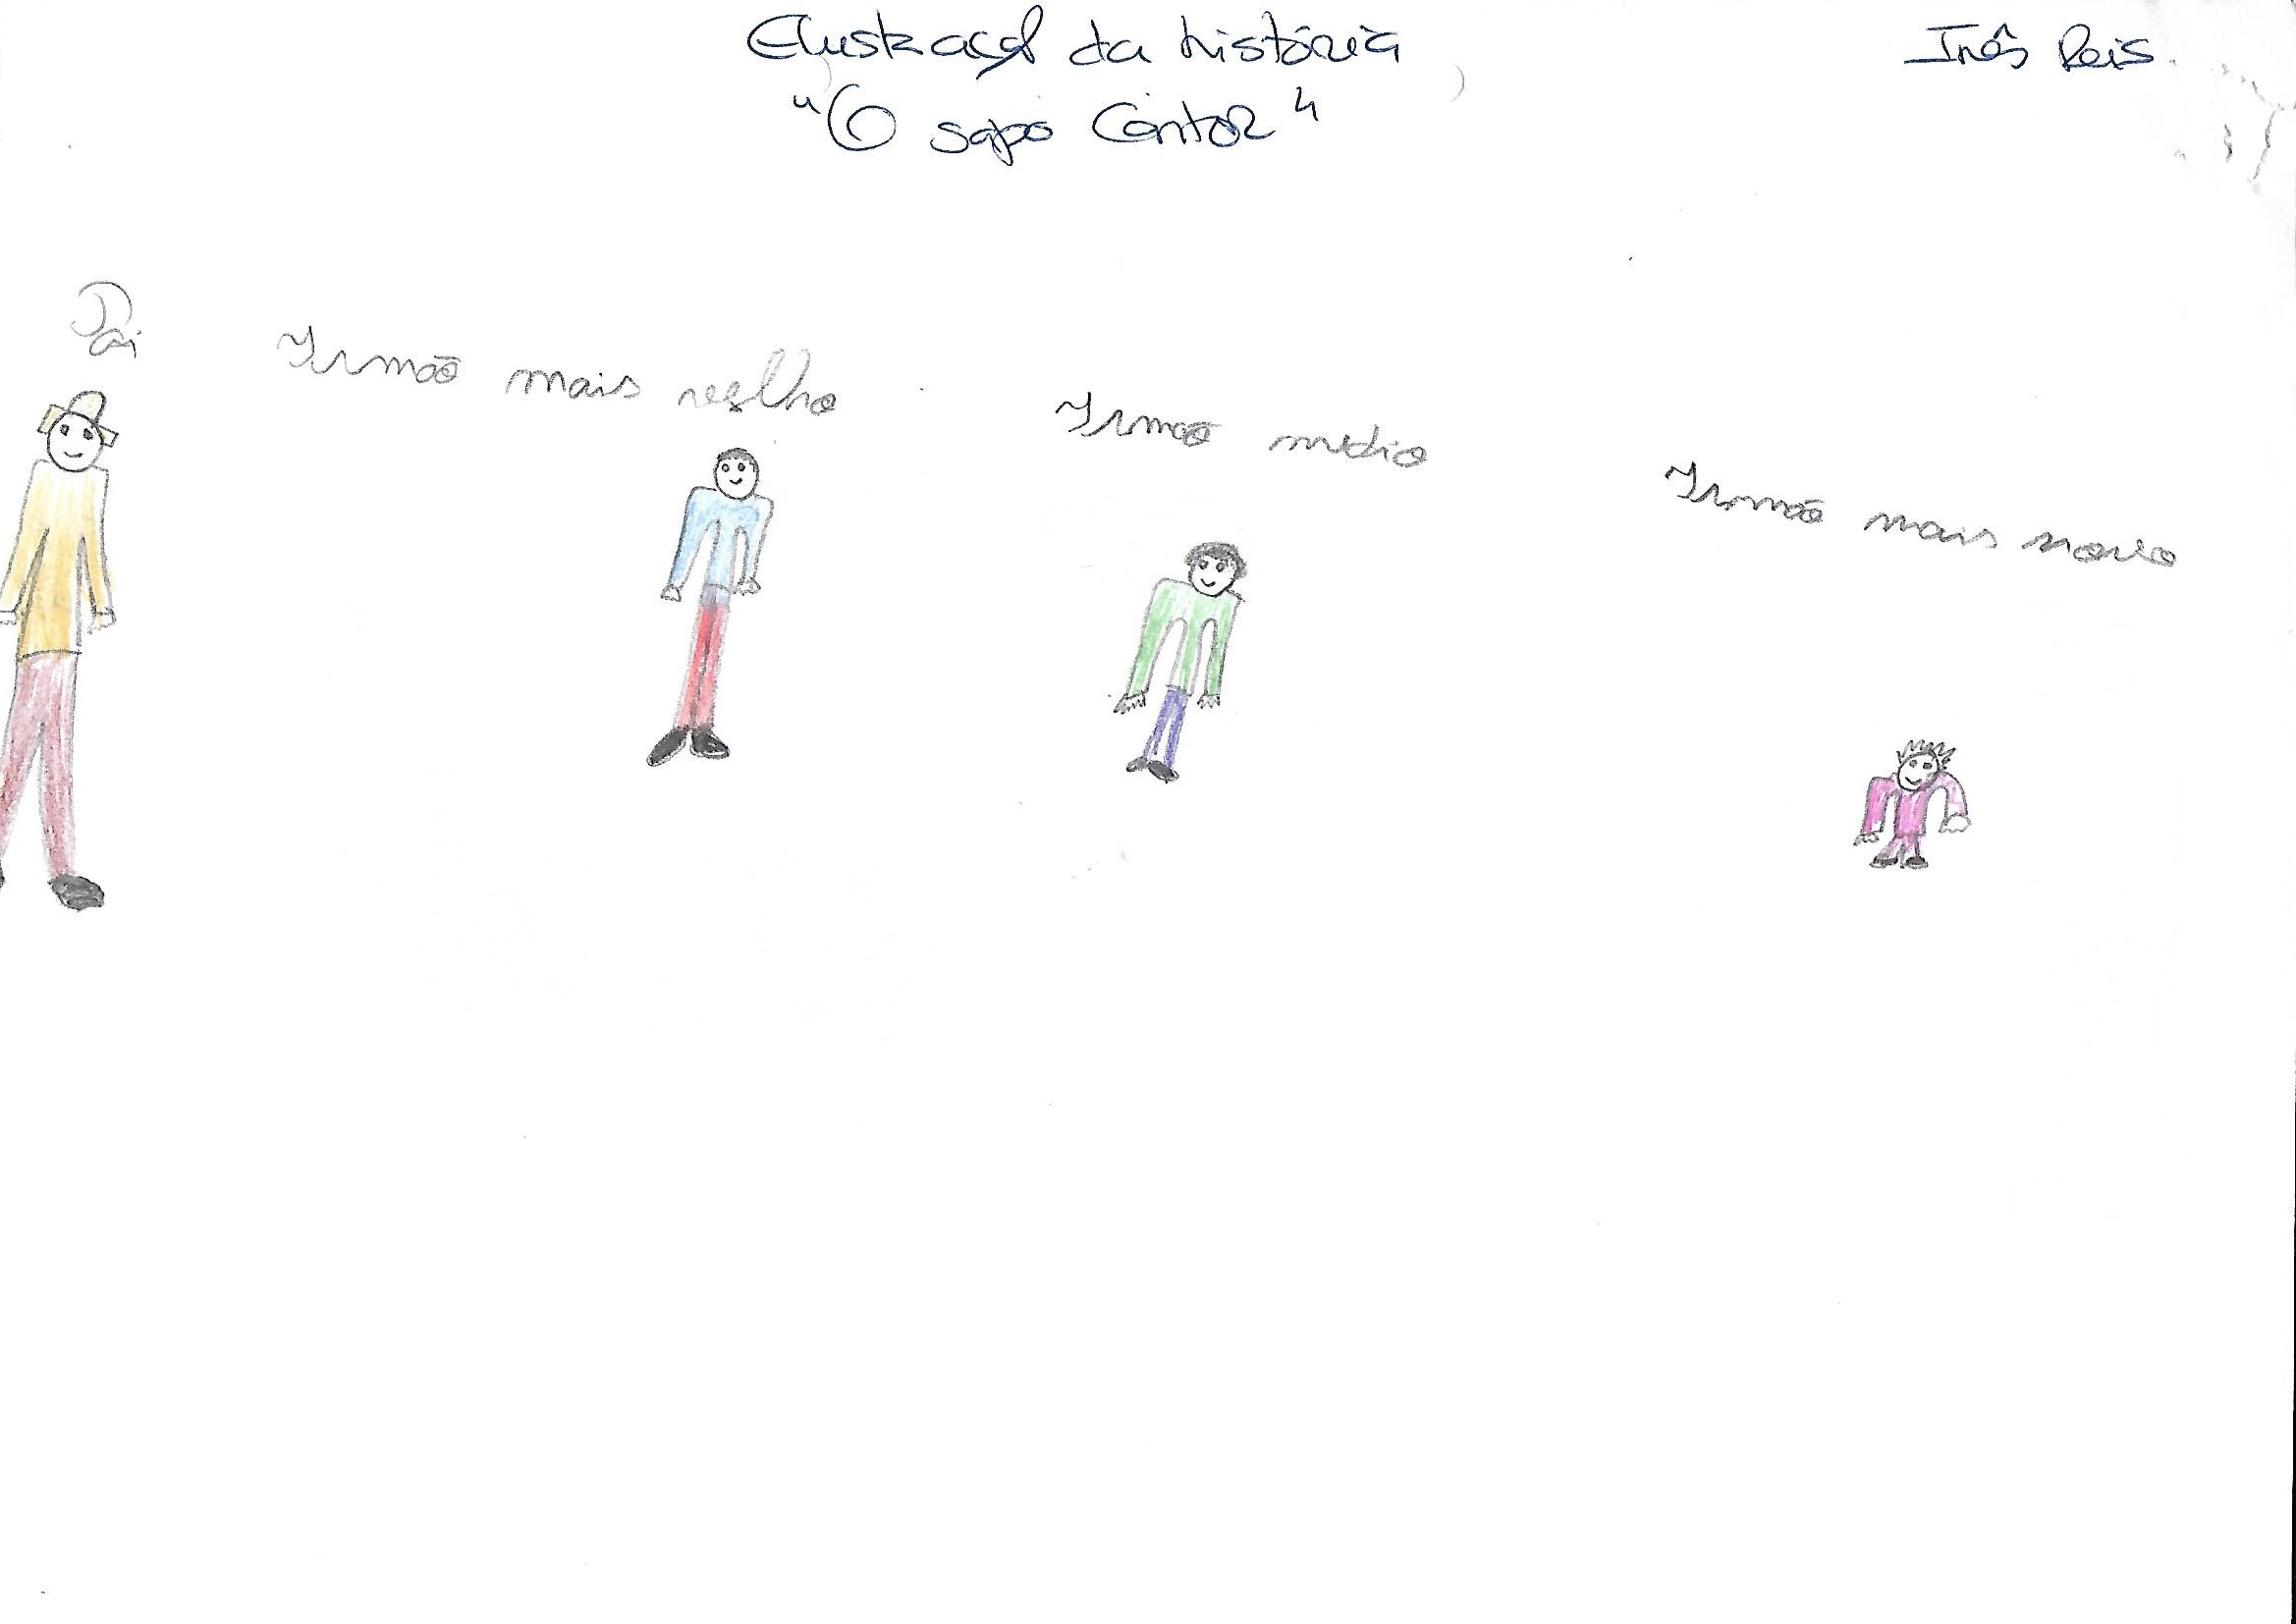 Ilustração da história
"O sapo Cantor"
Inês Reis.
Pai
Irmão mais velho
Irmão médio
Irmão mais novo